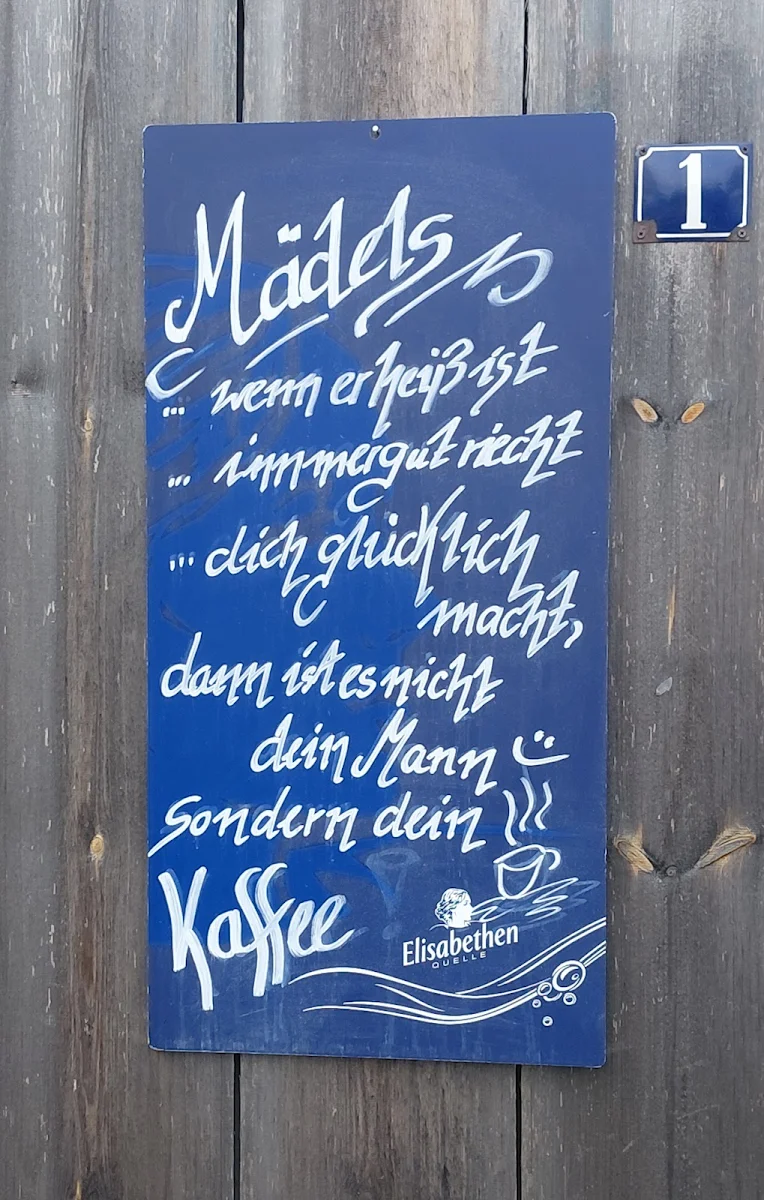 Mädels
1
... wenn er heiß ist
... immer gut riecht
... dich glücklich
macht,
dann ist es nicht
dein Mann
Sondern dein
Kaffee
Elisabethen
QUELLE